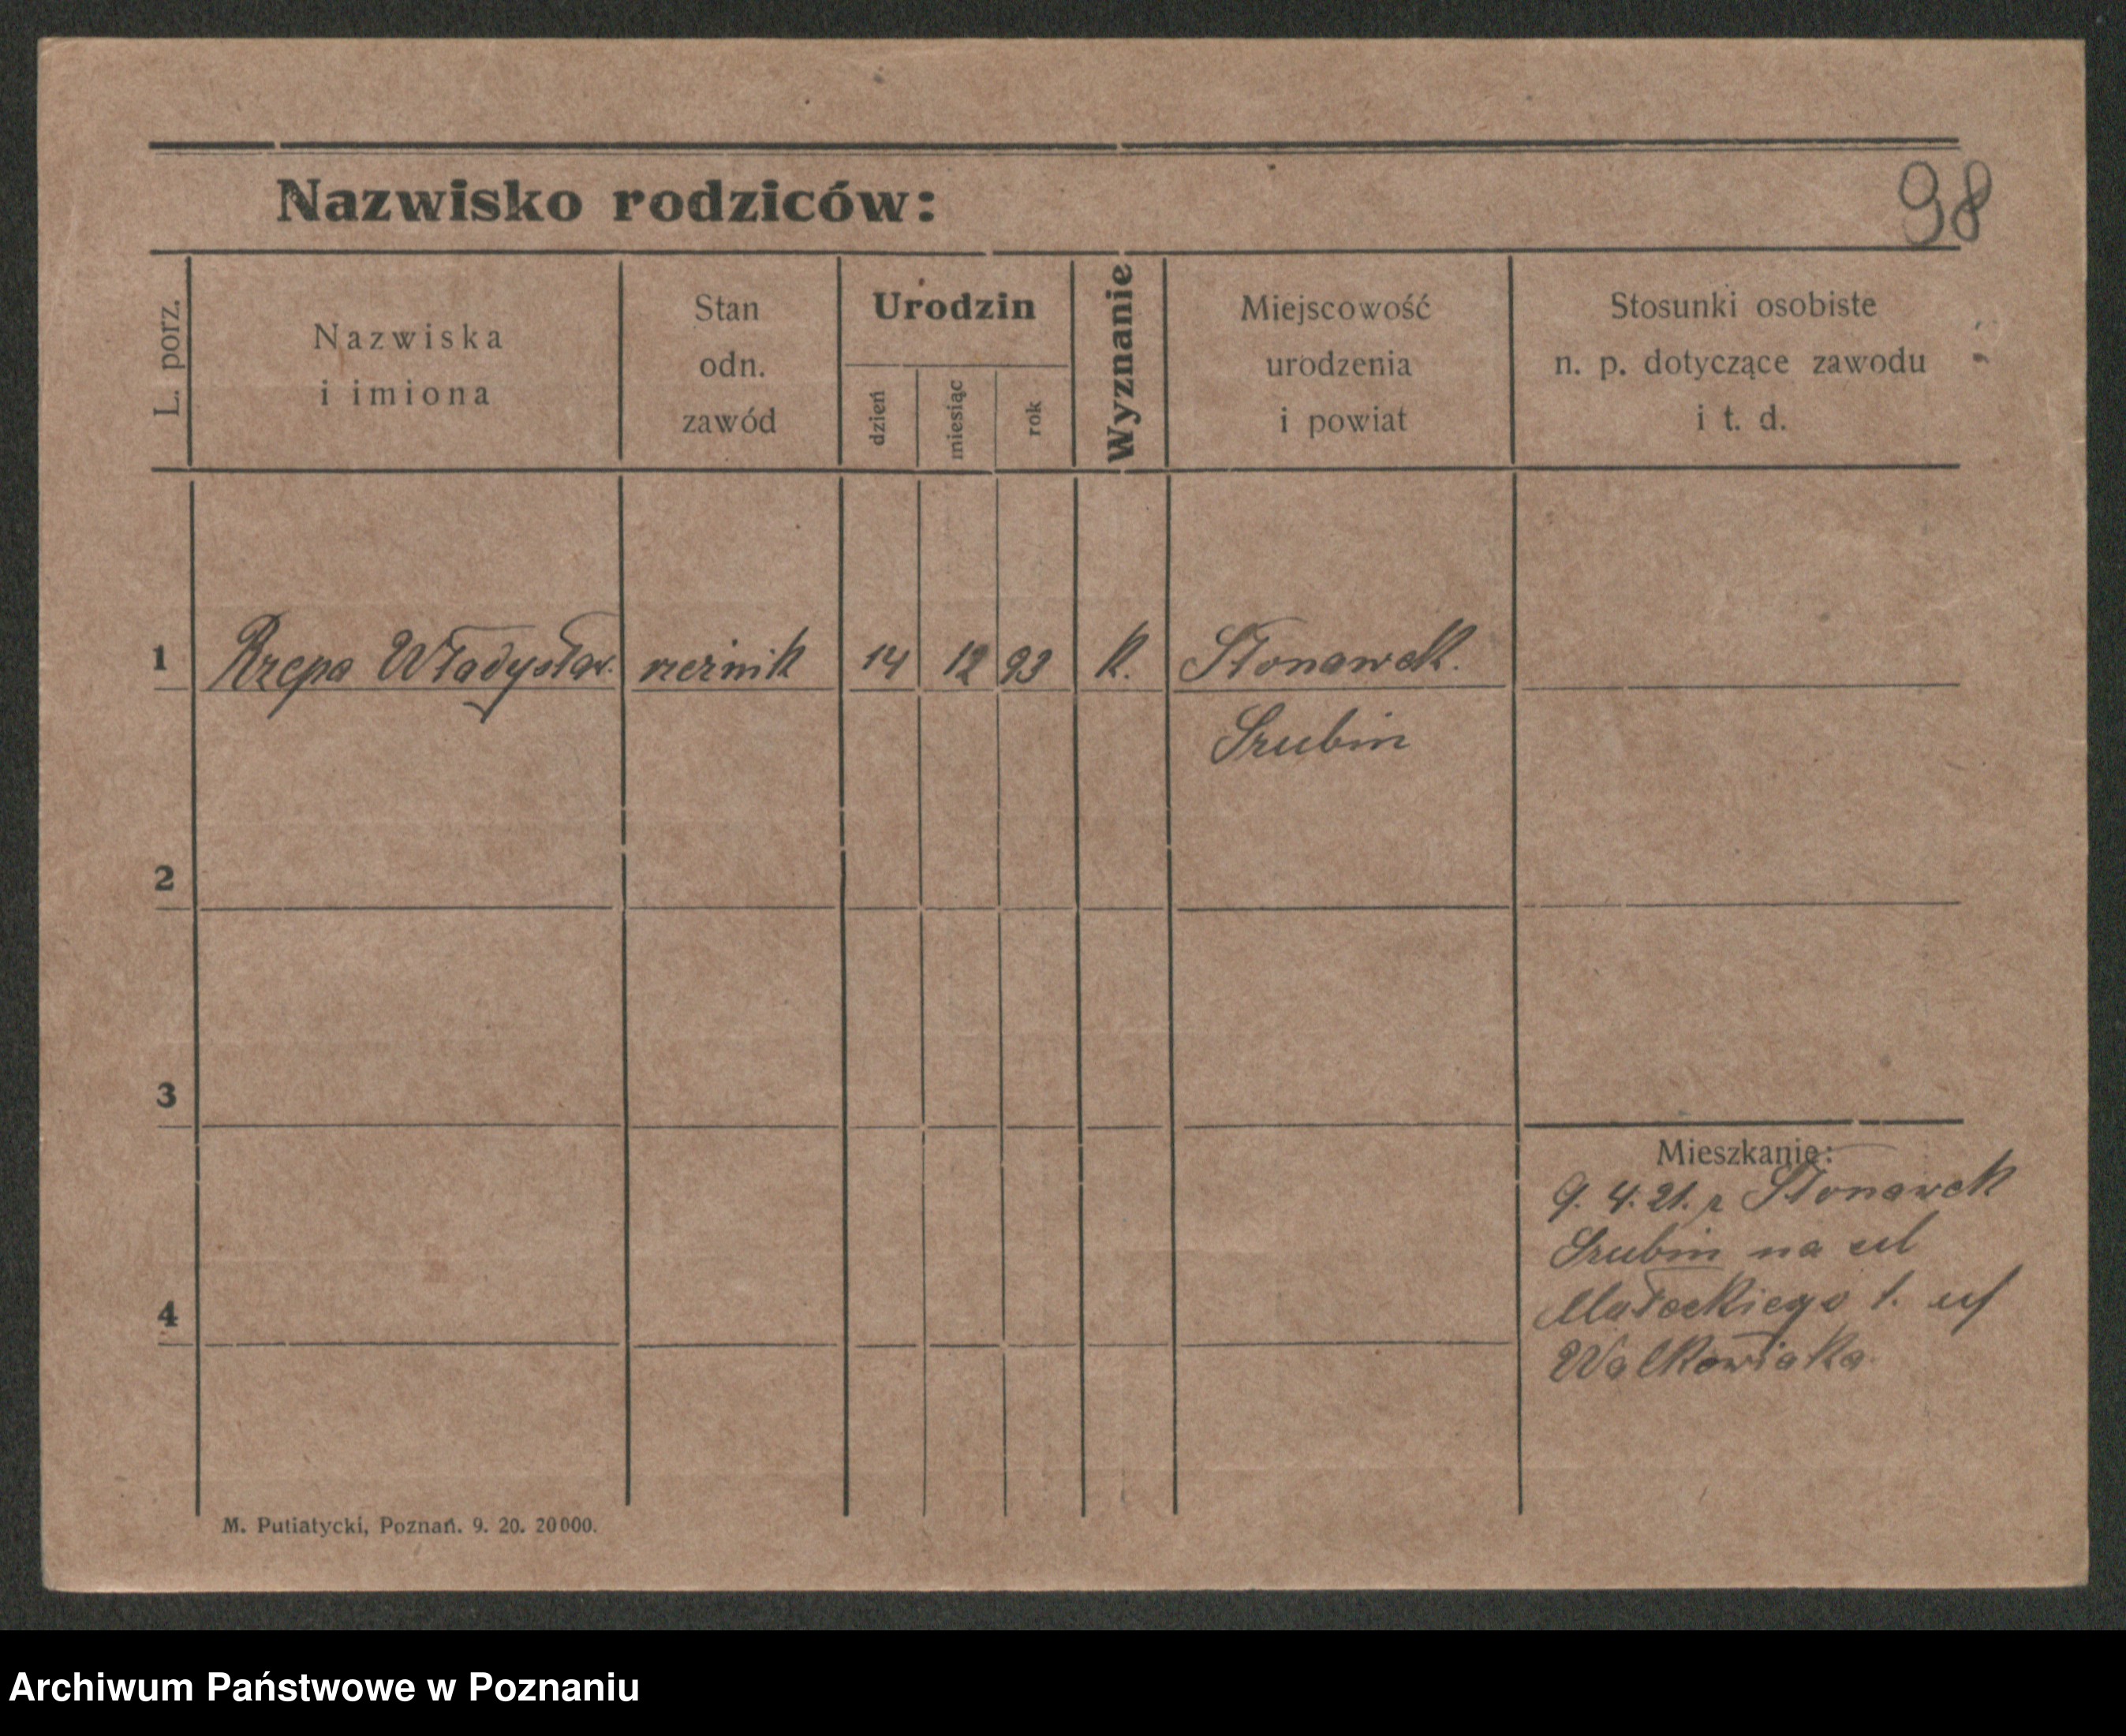 Nazwisko rodziców:
98
L. porz.
Nazwiska
i imiona
Stan
odn.
zawód
Urodzin
dzień
miesiąc
rok
Wyznanie
Miejscowość
urodzenia
i powiat
Stosunki osobiste
n. p. dotyczące zawodu
i t. d.
1 Rzepa Władysław. rzeźnik 14 12 93 k. Słonawek.
Szubin
2
3
Mieszkanie:
9. 4. 21. z Słonawek
Szubin na ul
4
Małeckiego 1. u
Walkowiaka
M. Putiatycki, Poznań. 9. 20. 20000.
Archiwum Państwowe w Poznaniu